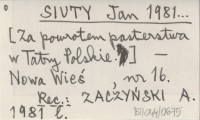 SIUTY Jan 1981...
[Za powrotem pasterstwa
w Tatry Polskie.] —
Nowa Wieś, nr 16.
Rec.: ZACZYŃSKI A.
1981 l.